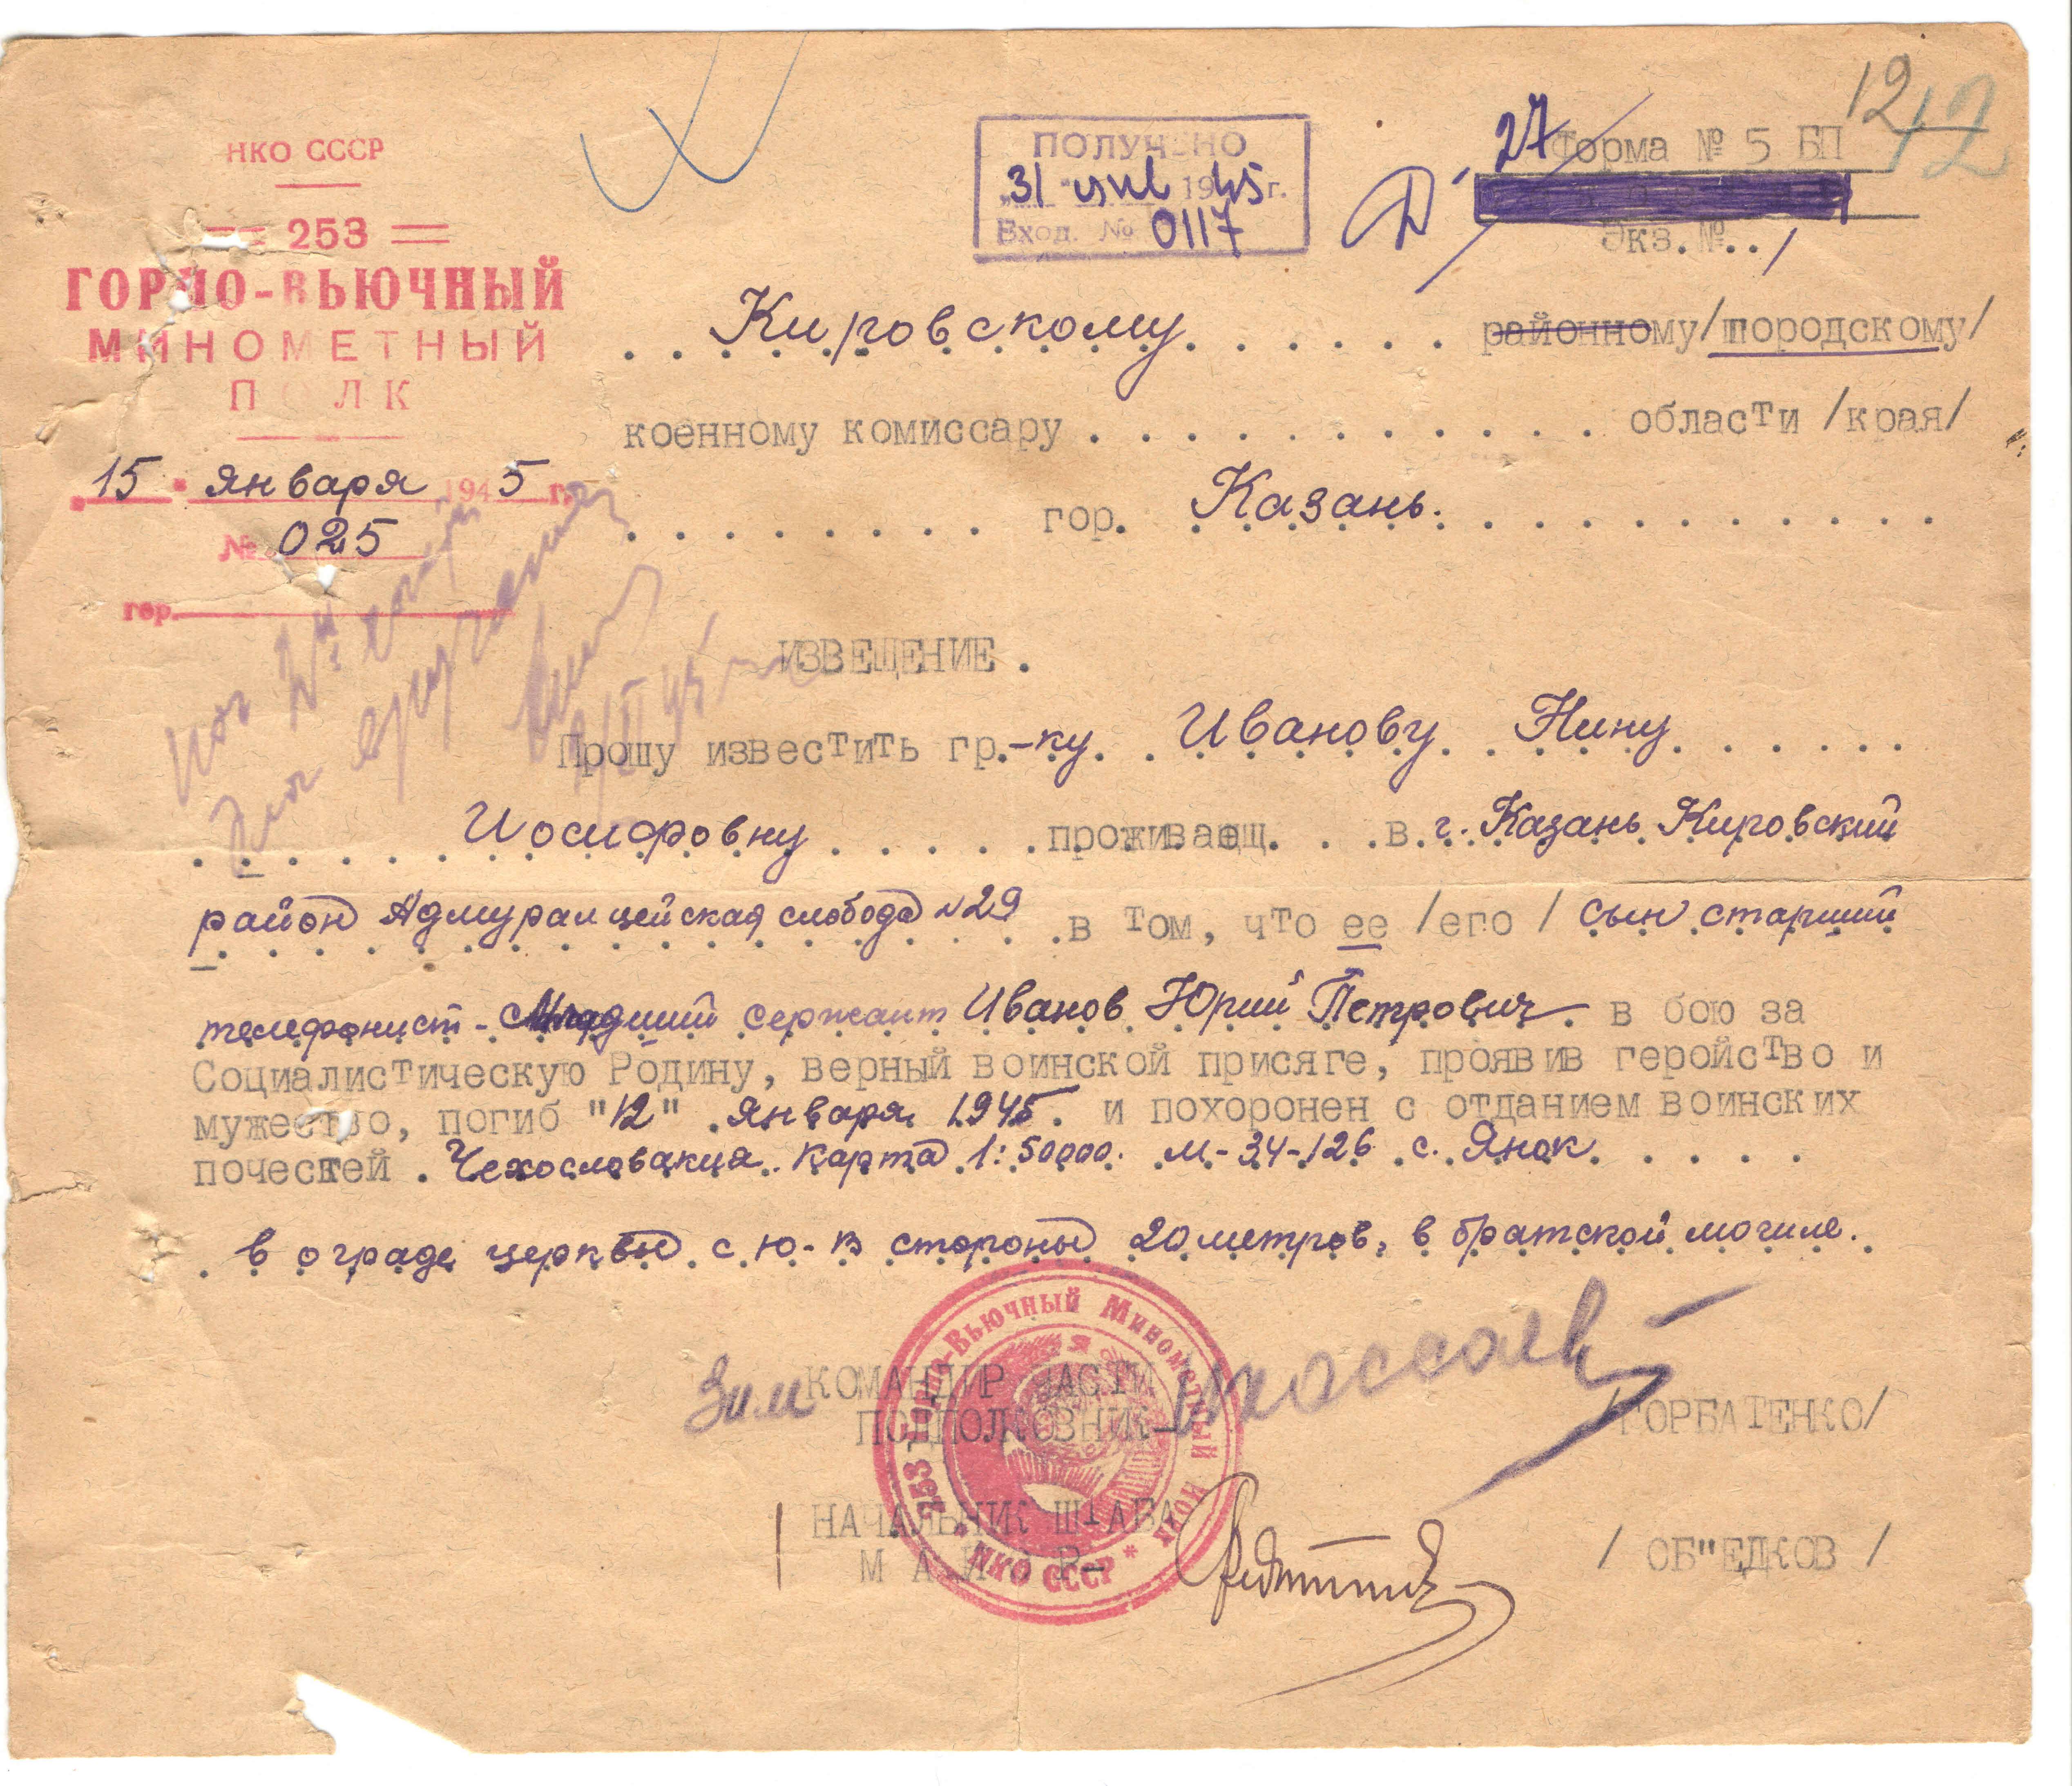 НКО СССР
253
ГОРНО-ВЬЮЧНЫЙ
МИНОМЕТНЫЙ
ПОЛК
15 января 1945 г.
№ 025
гор.
ПОЛУЧЕНО
"31" янв 1945 г.
Вход. № 0117
12
42
27
Форма № 5 БП
Экз. №..1
Кировскому районному/городскому/
военному комиссару . . . . . . . . . . . . области /края/
гор. Казань.
ИЗВЕЩЕНИЕ.
Прошу известить гр.-ку Иванову Нину
Иосифовну проживающ. в г. Казань Кировский
район Адмуралцейская слобода N 29 в том, что ее /его/ сын старший
телефонист - младший сержант Иванов Юрий Петрович в бою за
Социалистическую Родину, верный воинской присяге, проявив геройство и
мужество, погиб "12" января 1945. и похоронен с отданием воинских
почестей. Чехословакия. карта 1:50000. М-34-126 с. Янок
в ограде церквы с ю-в стороны 20 метров, в братской могиле.
Зам КОМАНДИР ЧАСТИ
ПОДПОЛКОВНИК- /ГОРБАТЕНКО/
НАЧАЛЬНИК ШТАБА
МАЙОР- / ОБ"ЕДКОВ /
253 Горно-Вьючный Минометный полк * НКО СССР *